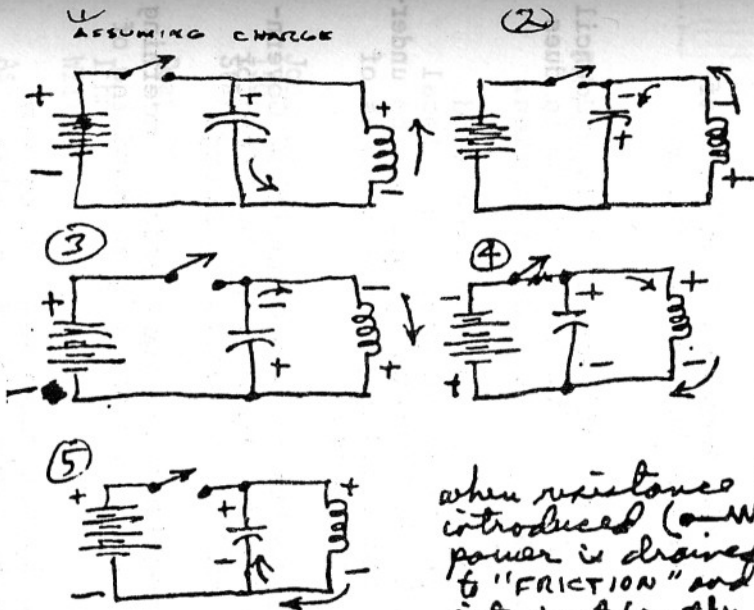 1
ASSUMING CHARGE
2
+ + +
- - -
- -
+ +
3
4
+ - -
- + +
- + +
+ - -
5
+ + +
- - -
when resistance
introduced (
power is drained
to "FRICTION" and